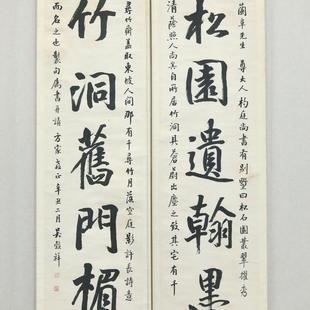 蘭阜先生 尊大人杓庭尚書有別墅曰松石園叢翠雄秀
松園遺翰墨
清蔭照人尚其自所居竹洞具蒼蔚出塵之致其宅有千
尋竹齋蓋取東坡人間那有千尋竹月落空庭影許長詩意
竹洞舊門楣
而名之也製句屬書并請 方家正 辛丑二月 吳穀祥